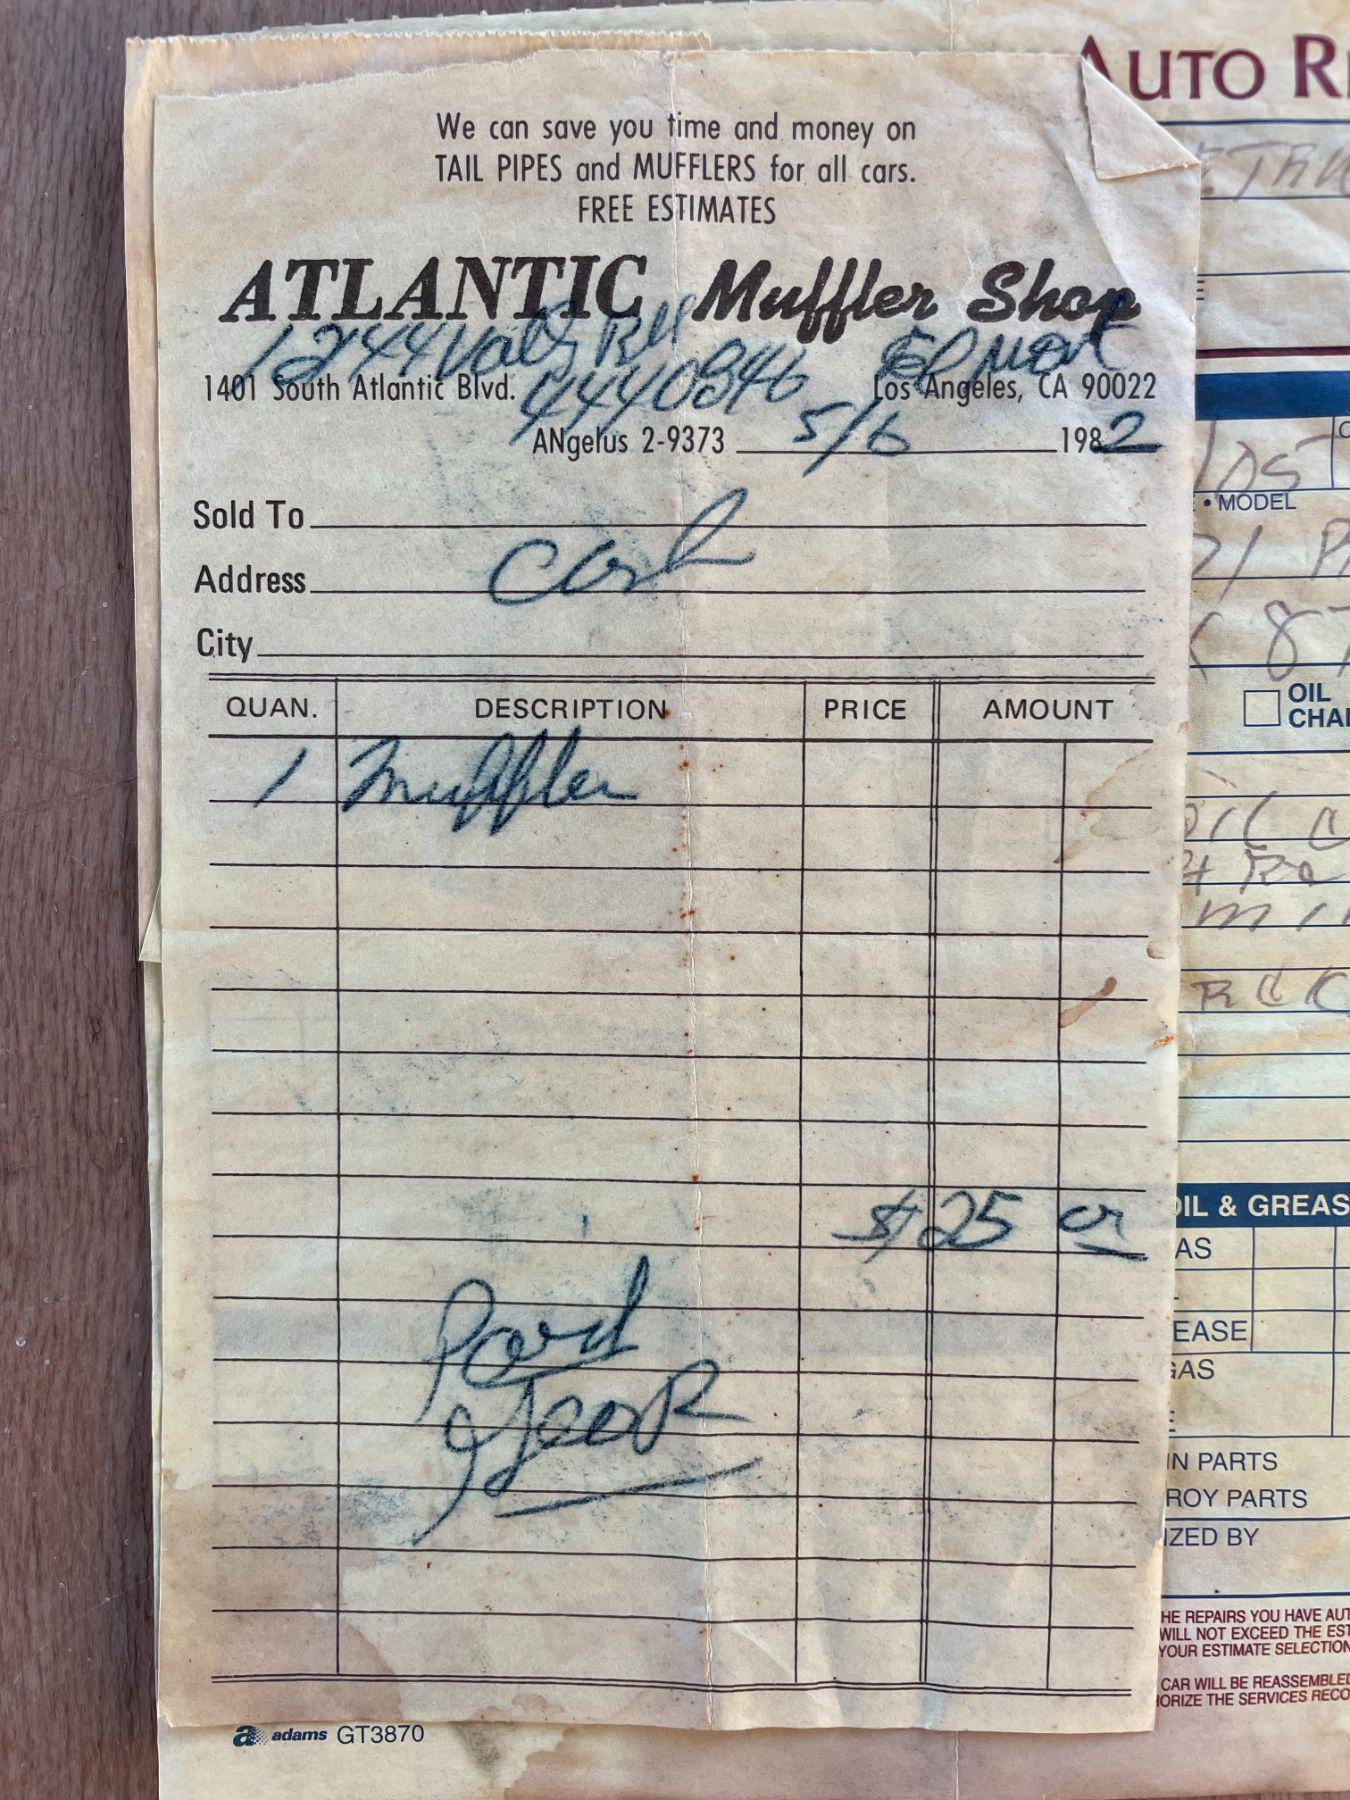 We can save you time and money on
TAIL PIPES and MUFFLERS for all cars.
FREE ESTIMATES
ATLANTIC Muffler Shop
12444
1401 South Atlantic Blvd. Los Angeles, CA 90022
4440846
ANgelus 2-9373 5/6 1982
Sold To
Cash
Address
City
QUAN. DESCRIPTION PRICE AMOUNT
1 Muffler
$25
Paid
adams GT3870
AUTO R
• MODEL
OIL
CHA
OIL & GREAS
AS
EASE
GAS
N PARTS
ROY PARTS
IZED BY
HE REPAIRS YOU HAVE AUT
WILL NOT EXCEED THE EST
YOUR ESTIMATE SELECTION
CAR WILL BE REASSEMBLED
ORIZE THE SERVICES RECO